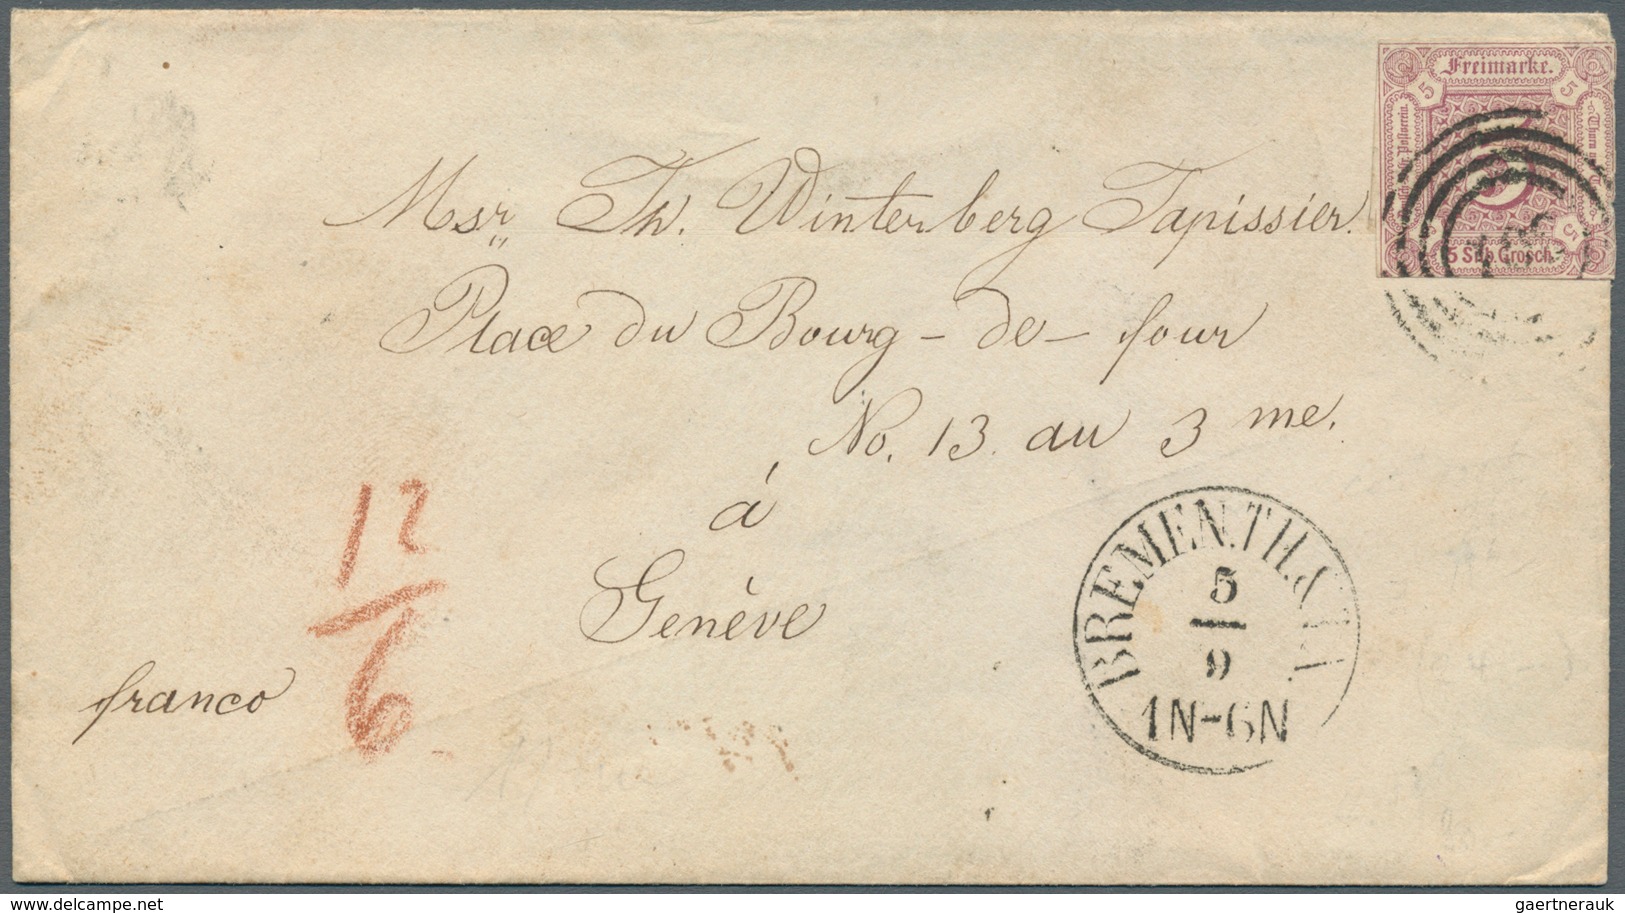 Freimarke.
5 5
5
5 Silb. Grosch.
Msr Th. Winterberg Tapissier.
Place du Bourg - de - four
No. 13. au 3 me.
á
Genève
franco
12
6
BREMEN.TH.&
5
9
1N-6N
www.delcampe.net
gaertnerauk